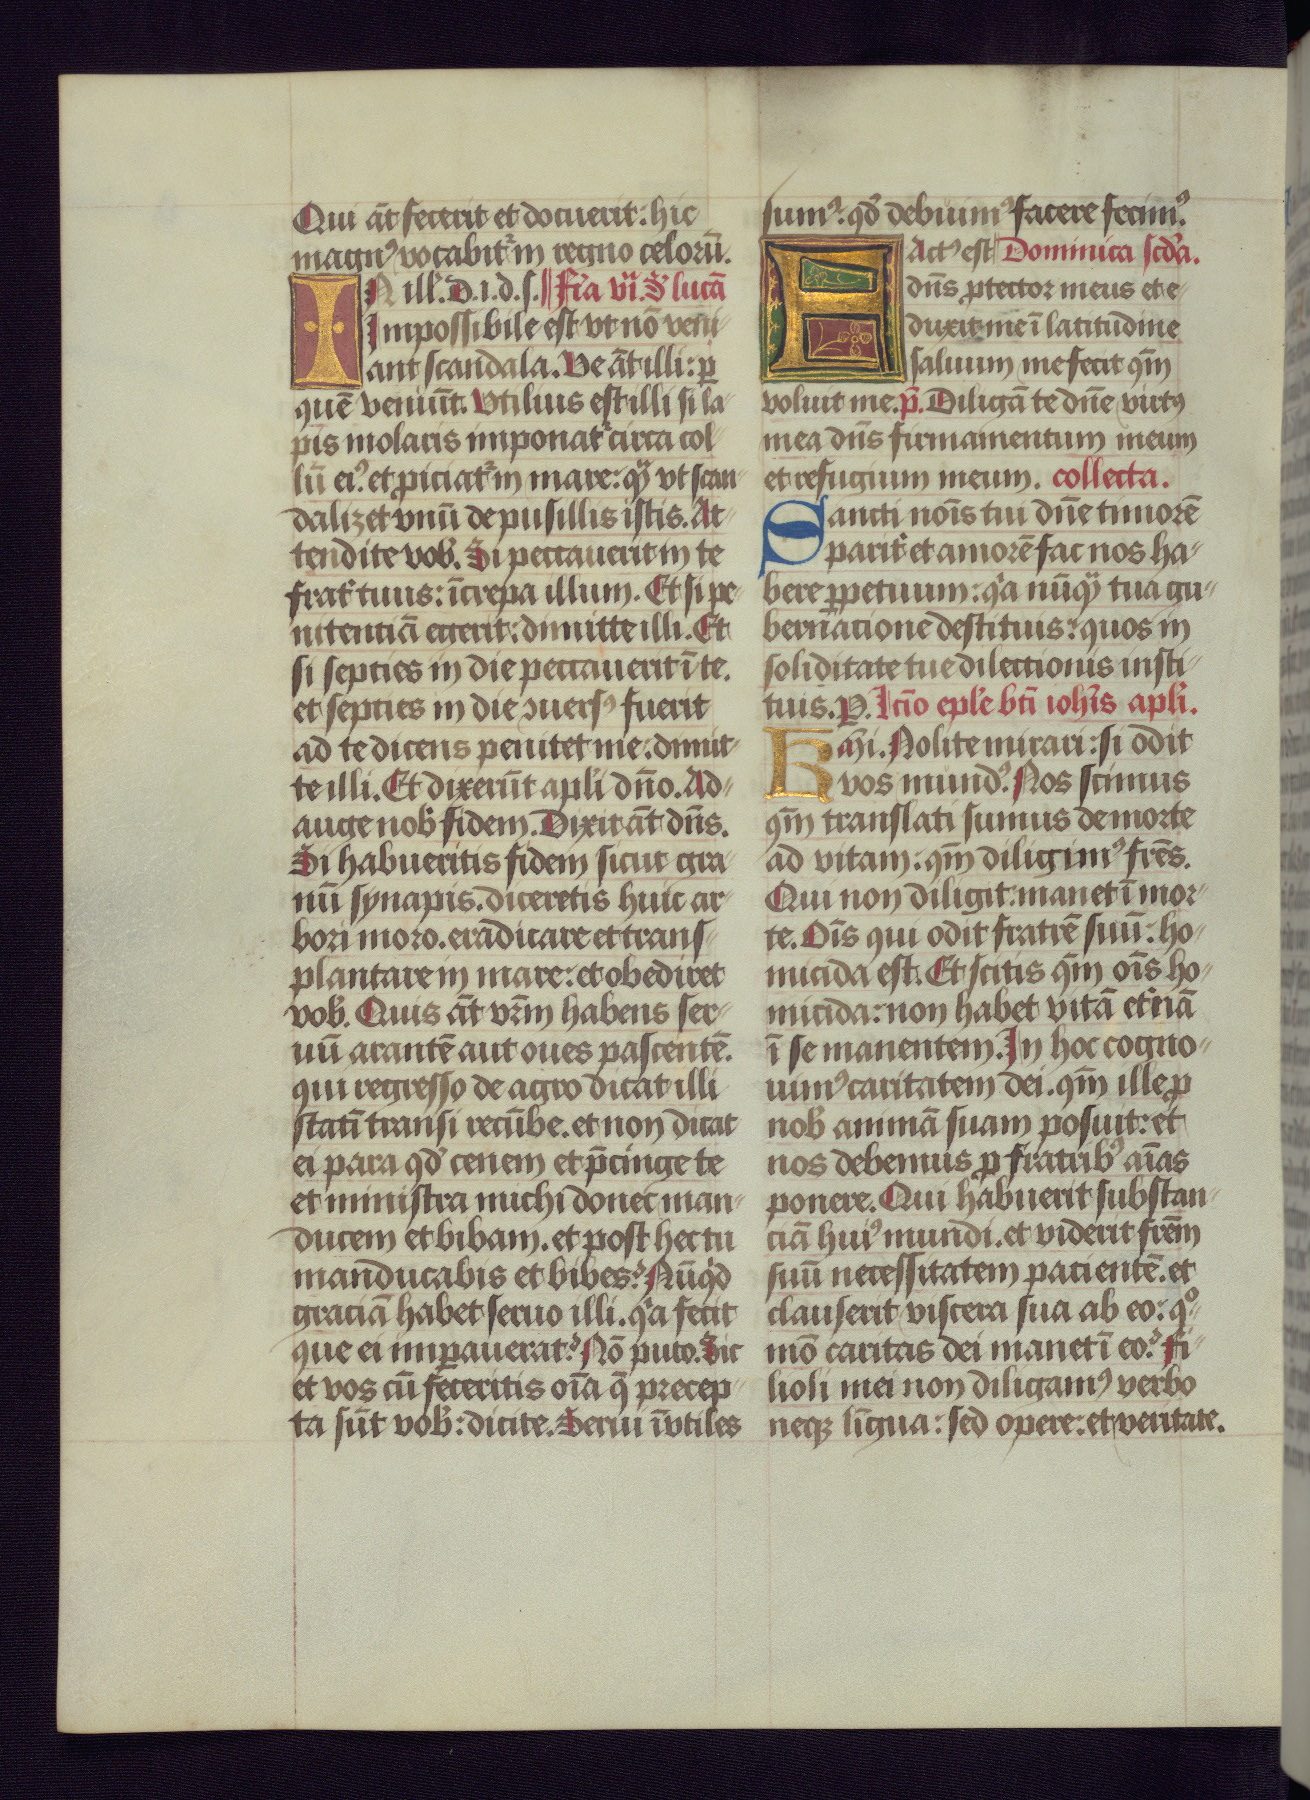 Qui āt fecerit et docuerit: hic
magnꝰ vocabit᷑ in regno celorū.
IN ill̓. D. i. d. s. Fr̄a vi. S̄ lucā
Impossibile est vt nō veni-
ant scandala. Ve āt illi: ꝑ
quē veniūt. Vtilius est illi si la-
pis molaris imponat᷑ circa col-
lū eiꝰ. et ꝓiciat᷑ in mare: qͣ̄ vt scan-
dalizet vnū de pusillis istis. At-
tendite vob̓. Si peccauerit in te
frat̓ tuus: īcrepa illum. Et si pe-
nitentiā egerit: dimitte illi. Et
si septies in die peccauerit ī te.
et septies in die ꝯuersꝰ fuerit
ad te dicens penitet me: dimit-
te illi. Et dixerūt apl̓i dn̄o. Ad-
auge nob̓ fidem. Dixit āt dn̄s.
Si habueritis fidem sicut gra-
nū synapis. diceretis huic ar-
bori moro. eradicare et trans-
plantare in mare: et obediret
vob̓. Quis āt vr̄m habens ser-
uū arantē aut oues pascentē.
qui regresso de agro dicat illi
statī transi recūbe. et non dicat
ei para qd̓ cenem et p̄cinge te
et ministra michi donec man-
ducem et bibam. et post hec tu
manducabis et bibes? Nūqͥd
graciā habet seruo illi. qͥa fecit
que ei imꝑauerat? Nō puto. Sic
et vos cū feceritis oīa q̄ precep-
ta sūt vob̓: dicite. Serui īvtiles
sumꝰ. qd̓ debuimꝰ facere fecimꝰ.
FActꝰ est Dominica scd̓a.
dn̄s ꝓtector meus et e-
duxit me ī latitudine
saluum me fecit qm̄
voluit me. p̄. Diligā te dn̄e virtꝰ
mea dn̄s firmamentum meum
et refugium meum. collecta.
Sancti noīs tui dn̄e timorē
parit̓ et amorē fac nos ha-
bere ꝑpetuum: qͥa nūqͣ̄ tua gu-
bernacione destituis: quos in
soliditate tue dilectionis insti-
tuis. P. Lc̄io ep̄le bt̄i ioh̓is apl̓i.
Kr̄mi. Nolite mirari: si odit
vos mundꝰ. Nos scimus
qm̄ translati sumus de morte
ad vitam: qm̄ diligimꝰ fr̄es.
Qui non diligit: manet ī mor-
te. Oīs qui odit fratrē suū: ho-
micida est. Et scitis qm̄ oīs ho-
micida: non habet vitā et̓nā
ī se manentem. In hoc cogno-
uimꝰ caritatem dei. qm̄ ille ꝓ
nob̓ animā suam posuit: et
nos debemus ꝓ fratribꝰ aīas
ponere. Qui habuerit substan-
ciā huiꝰ mundi. et viderit fr̄em
suū necessitatem pacientē. et
clauserit viscera sua ab eo: qͦ-
mō caritas dei manet ī eo? Fi-
lioli mei non diligamꝰ verbo
neqꝫ lingua: sed opere: et veritate.